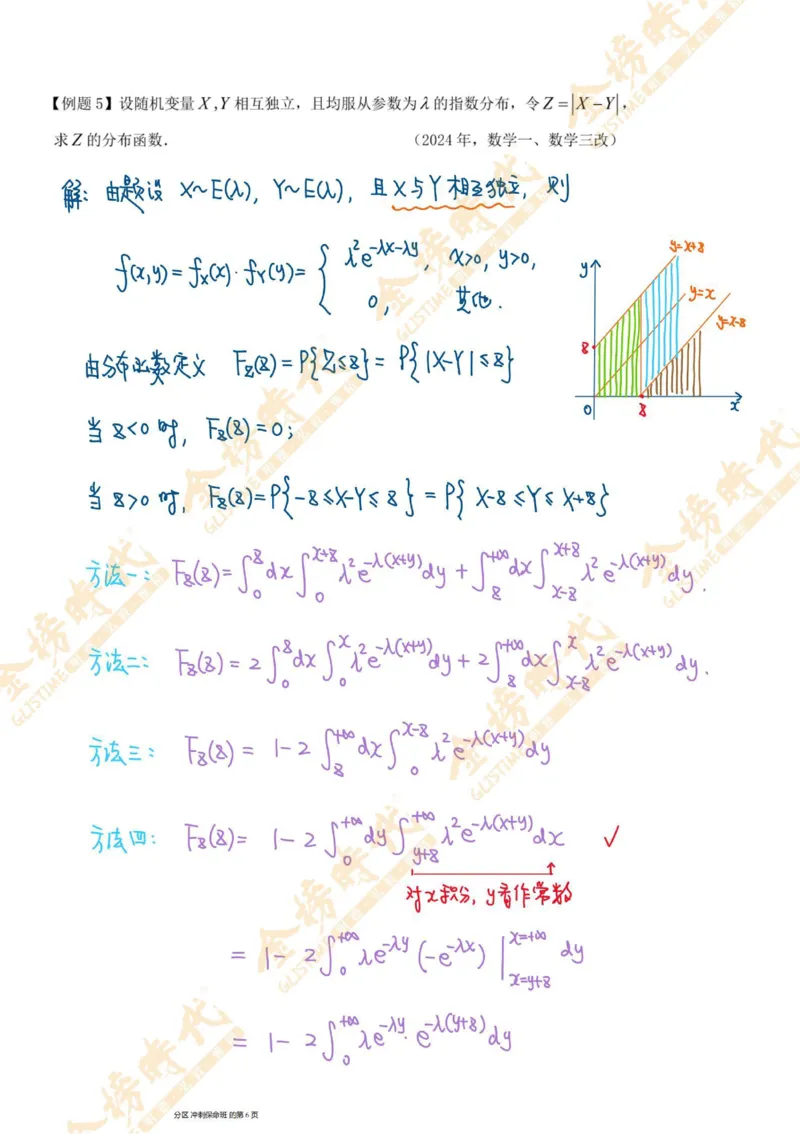 【例题5】设随机变量X,Y相互独立，且均服从参数为λ的指数分布，令Z=|X−Y|，
求Z的分布函数. （2024年，数学一、数学三改）
解：由题设 X~E(λ), Y~E(λ), 且X与Y相互独立, 则
f(x,y)=f_X(x)·f_Y(y)={ λ²e^{-λx-λy}, x>0, y>0,
0, 其他.
y=x+z
y=x
y=x-z
y
z
0
z
x
由分布函数定义 F_Z(z)=P{Z≤z}=P{|X-Y|≤z}
当z<0时, F_Z(z)=0;
当z>0时, F_Z(z)=P{-z≤X-Y≤z}=P{X-z≤Y≤X+z}
方法一: F_Z(z)=∫_0^z dx∫_0^{x+z} λ²e^{-λ(x+y)}dy+∫_z^{+∞}dx∫_{x-z}^{x+z} λ²e^{-λ(x+y)}dy.
方法二: F_Z(z)=2∫_0^z dx∫_0^x λ²e^{-λ(x+y)}dy+2∫_z^{+∞}dx∫_{x-z}^x λ²e^{-λ(x+y)}dy.
方法三: F_Z(z)=1-2∫_z^{+∞}dx∫_0^{x-z} λ²e^{-λ(x+y)}dy
方法四: F_Z(z)=1-2∫_0^{+∞}dy∫_{y+z}^{+∞} λ²e^{-λ(x+y)}dx ✓
对x积分, y看作常数
=1-2∫_0^{+∞} λe^{-λy}(-e^{-λx})|_{x=y+z}^{x=+∞} dy
=1-2∫_0^{+∞} λe^{-λy}·e^{-λ(y+z)}dy
分区 冲刺保命班 的第 6 页
金榜時代
GLISTIME